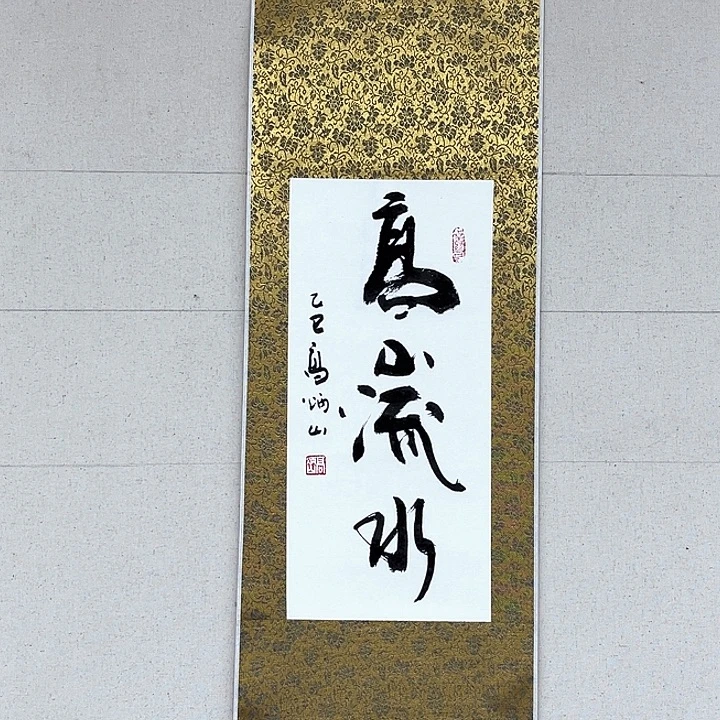 高山流水
乙巳高炳山